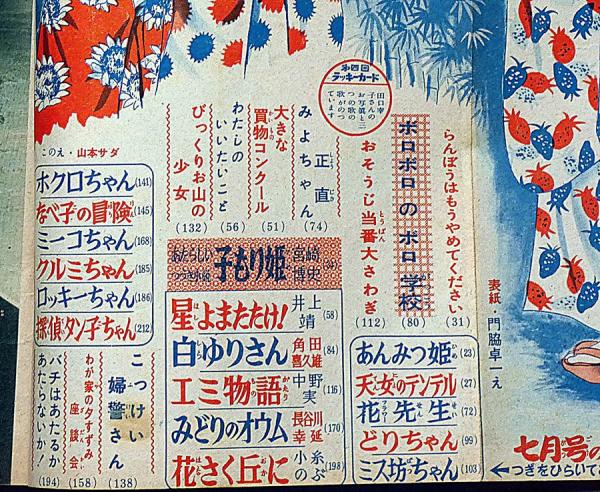 第四回
ラッキーカード
田口幸
子さんの
お写真と三
つの歌の
歌がのっ
ています
らんぼうはもうやめてください (31)
ボロボロのボロ学校 (80)
おそうじ当番大さわぎ (112)
正直
みよちゃん (74)
大きな
買物コンクール (51)
わたしの
いいたいこと (56)
びっくりお山の
少女 (132)
このえ・山本サダ
ホクロちゃん (141)
なべ子の冒険 (145)
ミーコちゃん (168)
クルミちゃん (185)
ロッキーちゃん (186)
探偵タン子ちゃん (212)
子もり姫 宮崎博史
星よまたたけ! 井上靖 (58)
白ゆりさん 角田喜久雄 (84)
エミ物語 中野実 (116)
みどりのオウム 長谷川幸延 (170)
花さく丘に 小糸のぶ (198)
あんみつ姫 (23)
天女のテンテル (27)
花先生 (72)
どりちゃん (99)
ミス坊ちゃん (103)
こっけい
婦警さん (138)
わが家の夕すずみ
座談会 (158)
バチはあたるか
あたらないか! (194)
表紙 門脇卓一え
七月号の
←つぎをひらいてお